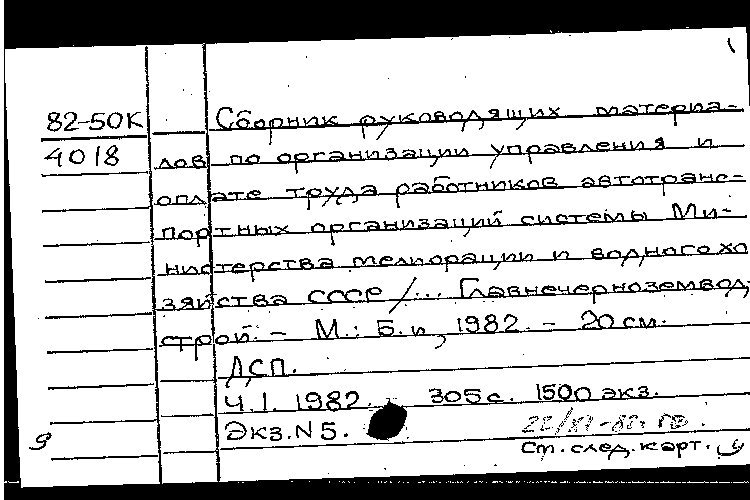 82-50К Сборник руководящих материа-
4018 лов по организации управления и
оплате труда работников автотранс-
портных организаций системы Ми-
нистерства мелиорации и водного хо
зяйства СССР /... Главнечерноземвод,
строй. - М.: Б. и, 1982. - 20 см.
ДСП.
Ч. 1. 1982. 305 с. 1500 экз.
Экз. N 5.
См. след. карт.